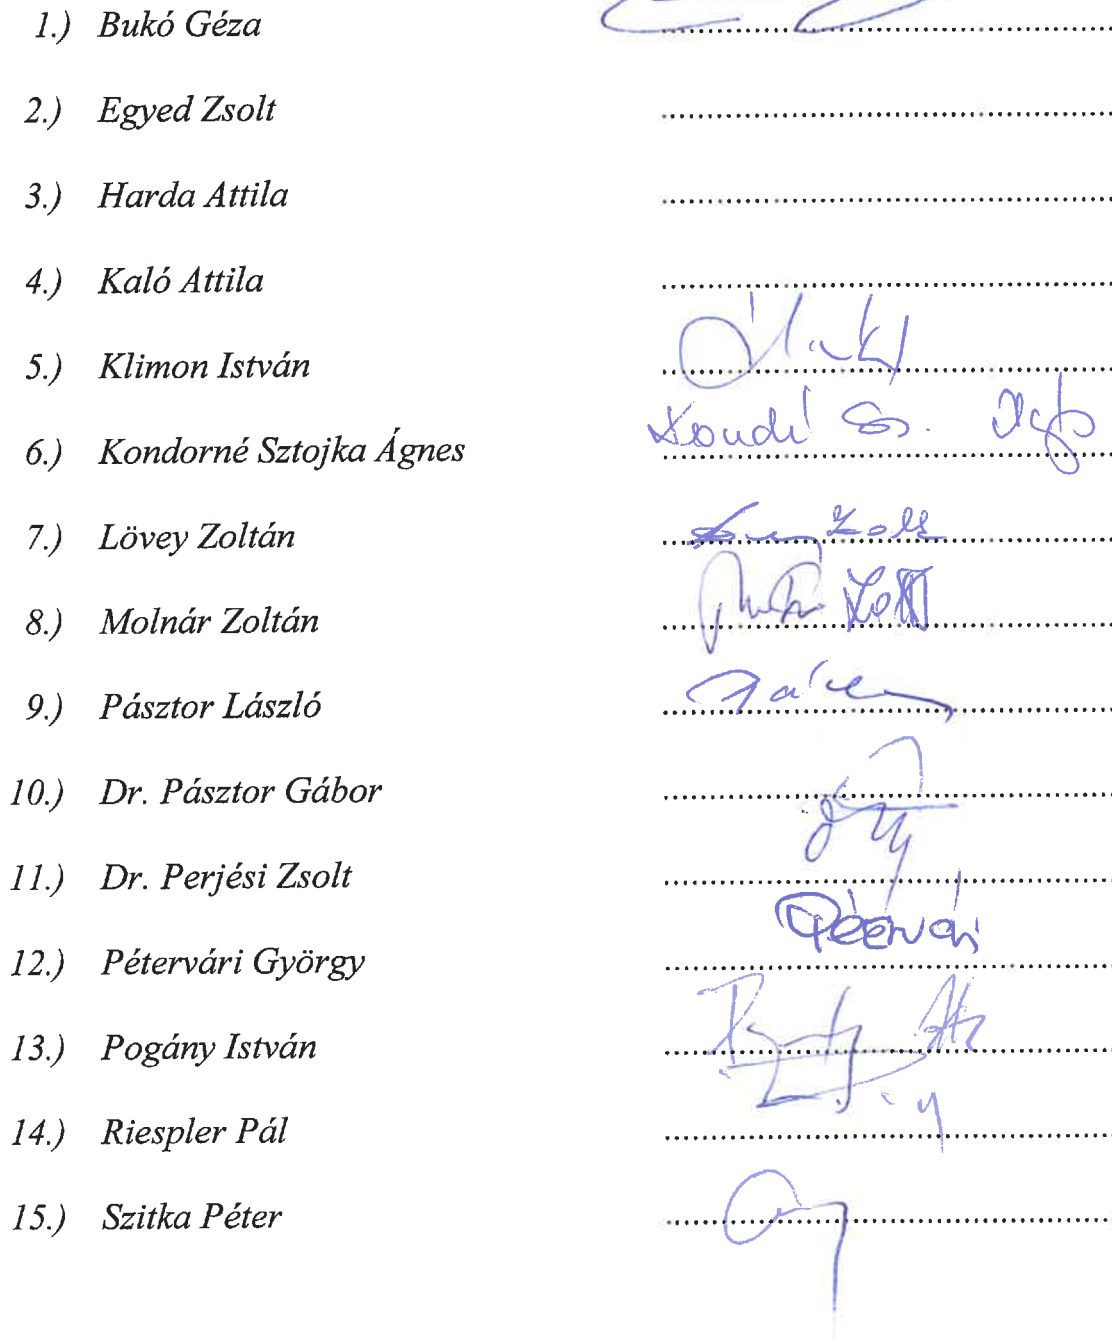 1.) Bukó Géza
2.) Egyed Zsolt
3.) Harda Attila
4.) Kaló Attila
5.) Klimon István
6.) Kondorné Sztojka Ágnes
7.) Lövey Zoltán
8.) Molnár Zoltán
9.) Pásztor László
10.) Dr. Pásztor Gábor
11.) Dr. Perjési Zsolt
12.) Pétervári György
13.) Pogány István
14.) Riespler Pál
15.) Szitka Péter